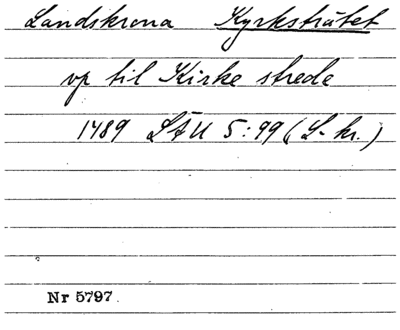 Landskrona Kyrksträtet
vp til Kirke strede
1489 LÄU 5:99 (L-kr.)
Nr 5797.